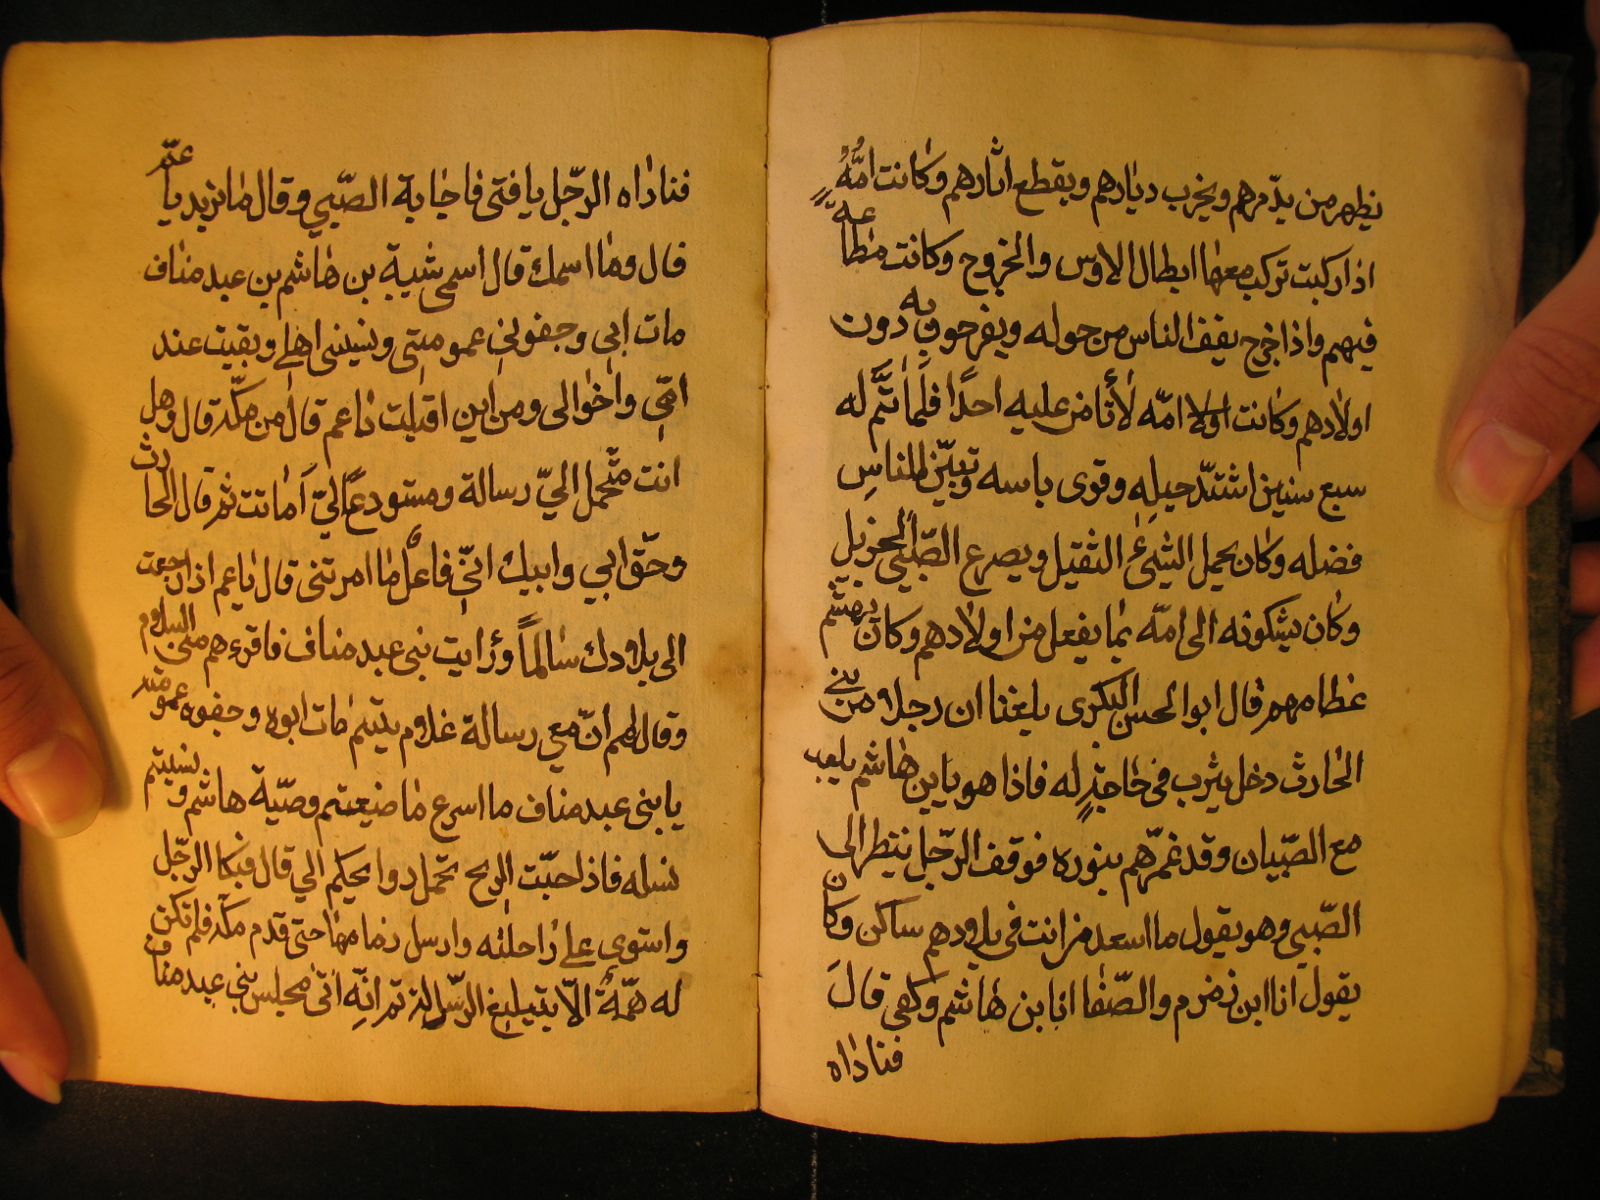 يظهر من يدّمرهم ويخرب ديارهم ويقطع اثارهم وكانت امّهُ
اذا ركبت تركب معها ابطال الاوس والخزوج وكانت مطاعة
فيهم واذا خرج يقف الناس من حوله ويفرحون به دون
اولادهم وكانت امّه لا تأمن عليه احدًا فلمّا تمَّ له
سبع سنين اشتدّ حيله وقوى باسه وتعيّن للناس
فضله وكان يحمل الشئ الثقيل ويصرع الصّبي
وكان يشكونه الى امّه بما يفعل من اولادهم وكان يهشم
عظامهم قال ابو الحسن البكرى بلغنا ان رجلا من بني
الحارث دخل يثرب فى حاجةٍ له فاذا هو باين هاشم يلعب
مع الصّبيان وقد غمّرهم بنوره فوقف الرّجل ينتظر الى
الصّبي وهو يقول ما اسعد من انت فى بلادهم ساكن وكان
يقول انا ابن زمزم والصّفا انا بن هاشم وكفى قالَ
فناداه
فناداه الرّجل يا فتى فاجابة الصّبي وقال ما تريد يا عمّ
قال وما اسمك قال اسمى شيبة بن هاشم بن عبد مناف
مات ابى وجفونى عمومتى ونسينى اهلى وبقيت عند
امّى واخوالى ومن اين اقبلت يا عم قال من مكّة قال وهل
انت متحمل اليّ رسالة ومستودعًا ليّ امانت ثم قال الحارث
وحقّ ابي وابيك انّي فاعل ما امرتنى قال يا عم اذا رجعت
الى بلادك سالمًا ورأيت بنى عبد مناف فاقرءهم منى السلام
وقال لهم انّ معي رسالة غلام يتيم مات ابوه وجفوه عمومته
يا بنى عبد مناف ما اسرع ما ضيعتم وصيّة هاشم ونسيتم
نسله فاذا حبّت الريح تحمل روايحكم الي قال فبكا الرّجل
واستوى على راحلته وارسل زمامها حتى قدم مكّة فلم تكن
له همّةٌ الّا بتبليغ الرّسالة ثم انّه اتى مجلس بنى عبد مناف